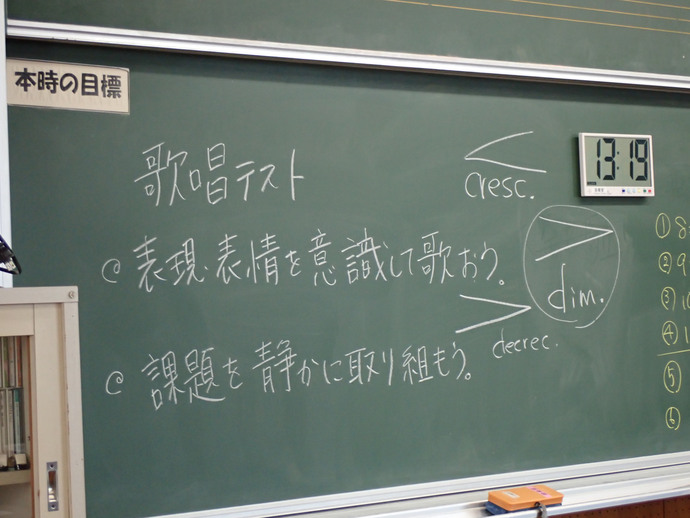 本時の目標
歌唱テスト
cresc.
13:19
@ 表現・表情を意識して歌おう。
dim.
decrec.
@ 課題を静かに取り組もう。
①
②
③
④
⑤
⑥